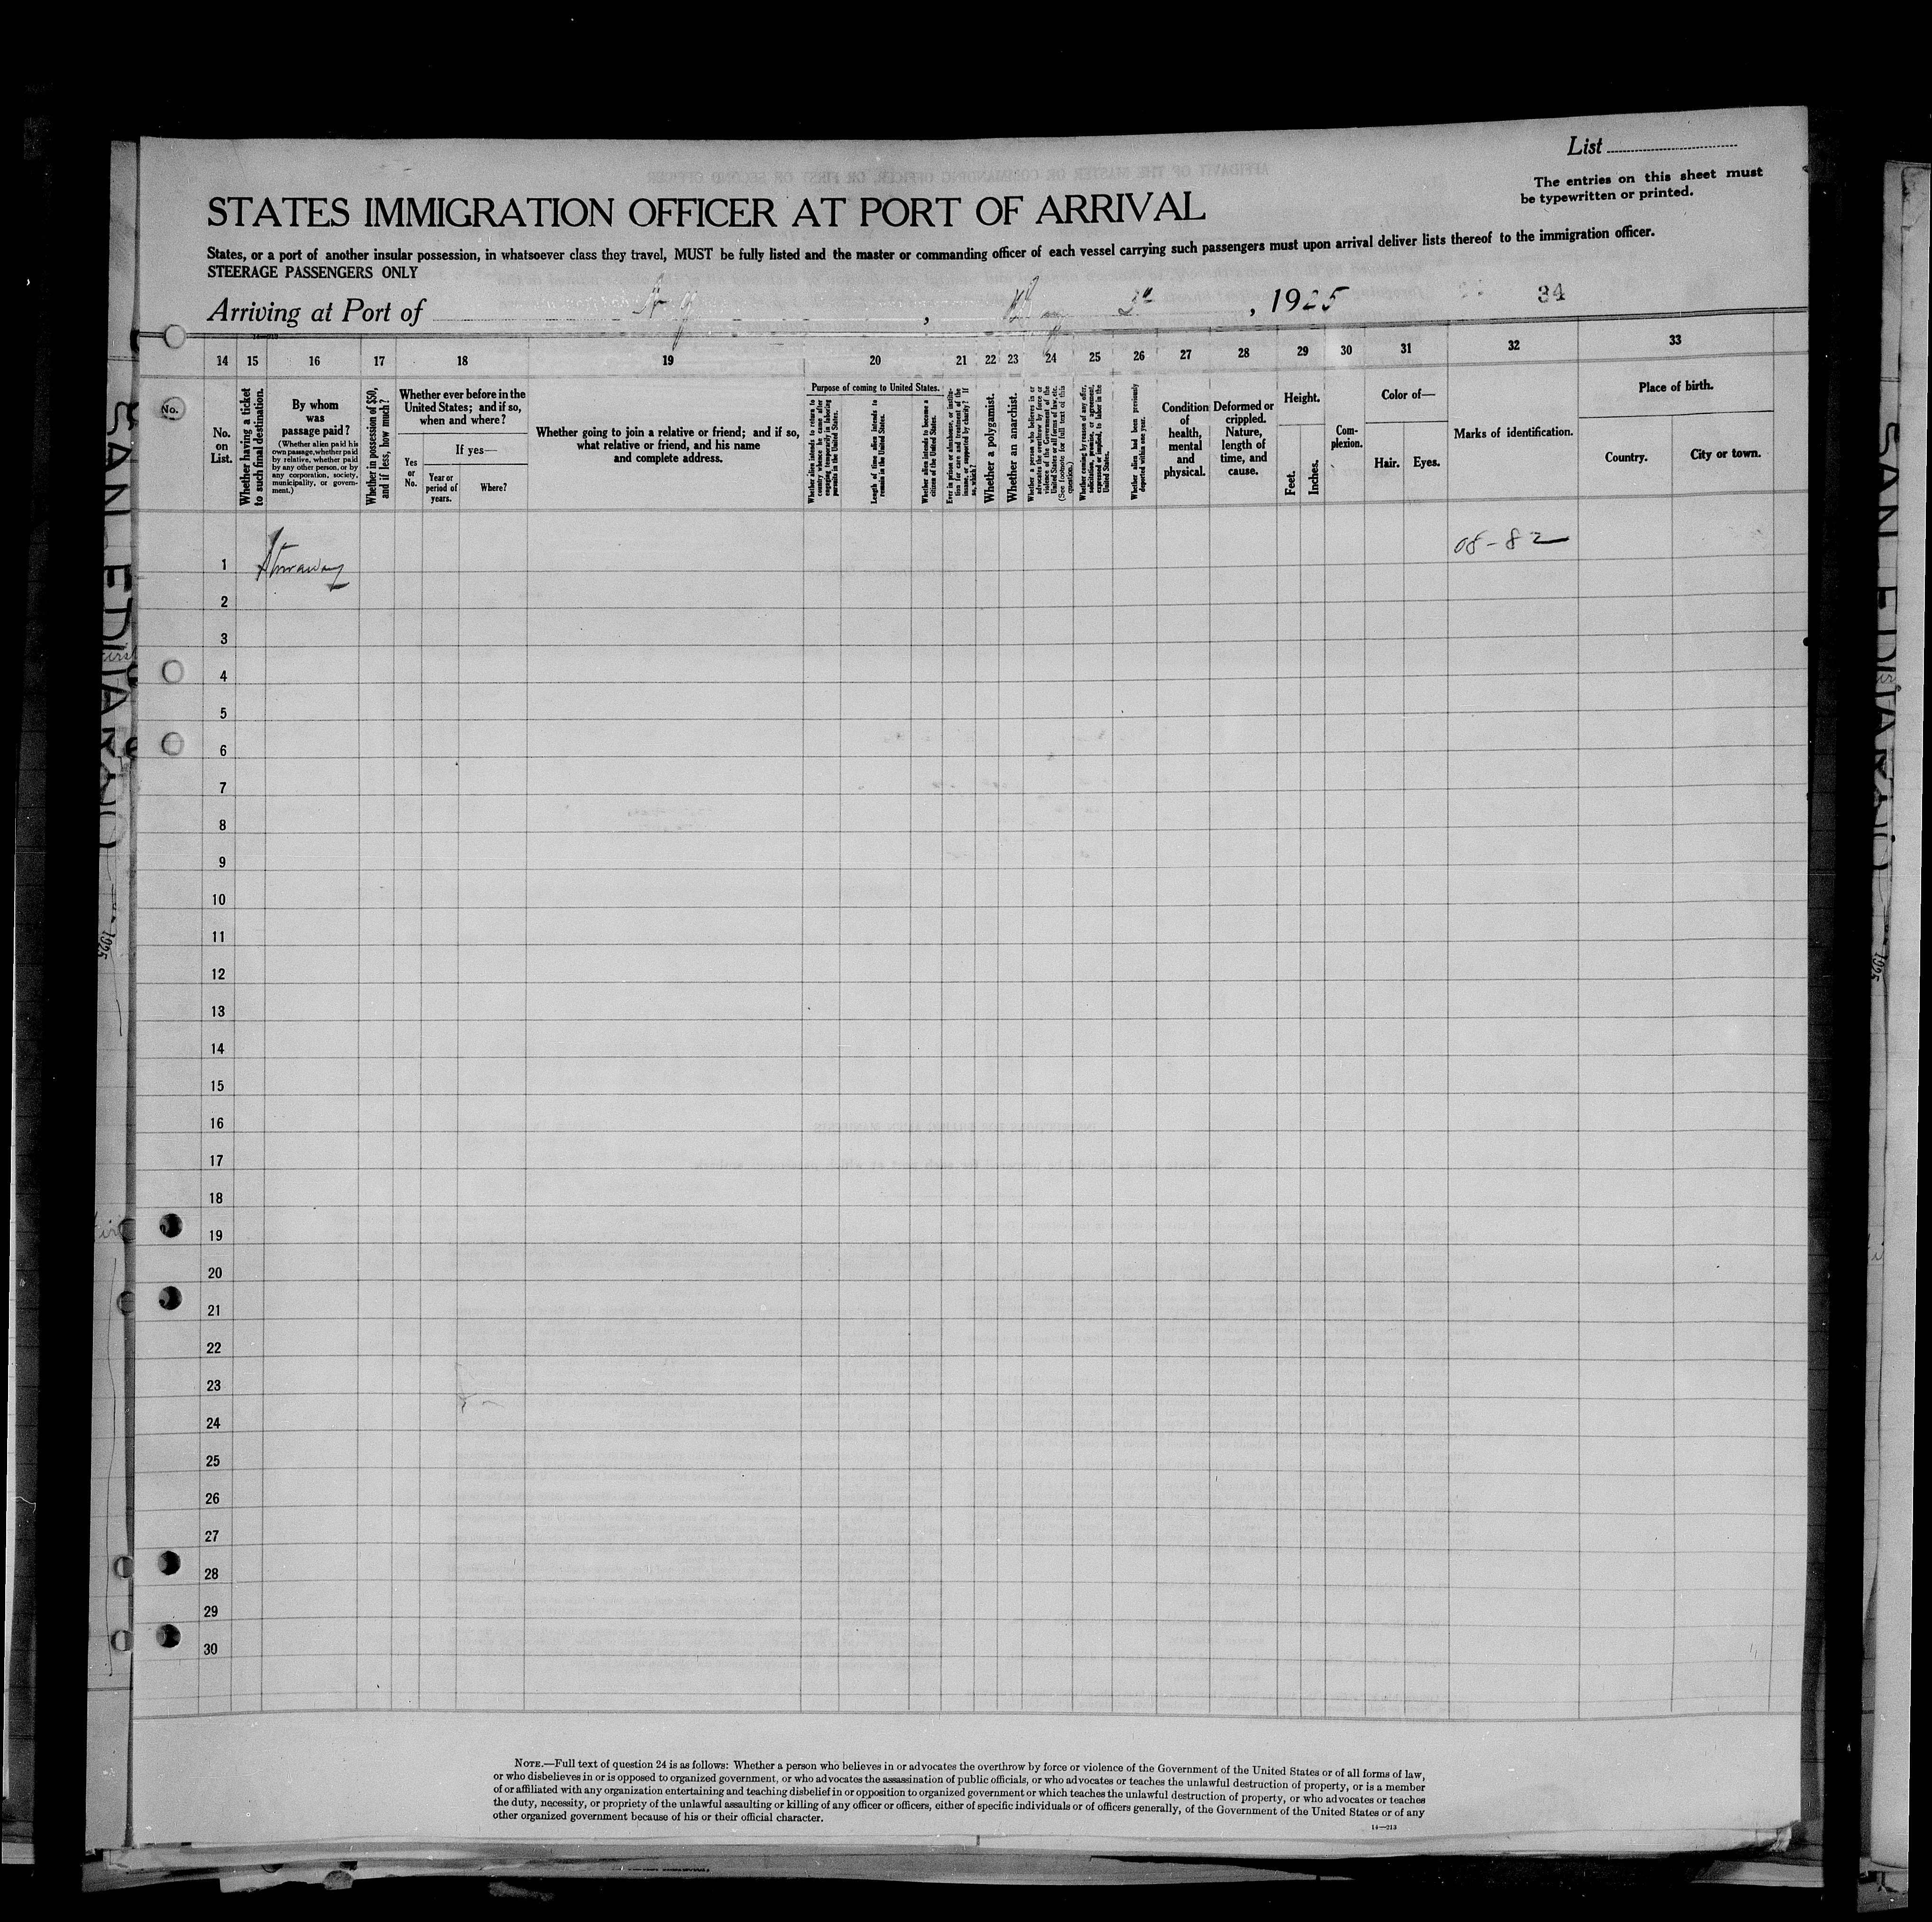 List
The entries on this sheet must
be typewritten or printed.
STATES IMMIGRATION OFFICER AT PORT OF ARRIVAL
States, or a port of another insular possession, in whatsoever class they travel, MUST be fully listed and the master or commanding officer of each vessel carrying such passengers must upon arrival deliver lists thereof to the immigration officer.
STEERAGE PASSENGERS ONLY
Arriving at Port of , , 1925 34
14 15 16 17 18 19 20 21 22 23 24 25 26 27 28 29 30 31 32 33
No.
No.
on
List.
Whether having a ticket
to such final destination.
By whom
was
passage paid?
(Whether alien paid his
own passage, whether paid
by relative, whether paid
by any other person, or by
any corporation, society,
municipality, or govern-
ment.)
Whether in possession of $50,
and if less, how much?
Whether ever before in the
United States; and if so,
when and where?
Yes
or
No.
If yes—
Year or
period of
years.
Where?
Whether going to join a relative or friend; and if so,
what relative or friend, and his name
and complete address.
Purpose of coming to United States.
Whether alien intends to return to
country whence he came after
engaging temporarily in laboring
pursuits in the United States.
Length of time alien intends to
remain in the United States.
Whether alien intends to become a
citizen of the United States.
Ever in prison or almshouse, or institu-
tion for care and treatment of the
insane, or supported by charity? If
so, which?
Whether a polygamist.
Whether an anarchist.
Whether a person who believes in or
advocates the overthrow by force or
violence of the Government of the
United States or all forms of law, etc.
(See footnote for full text of this
question.)
Whether coming by reason of any offer,
solicitation, promise, or agreement,
expressed or implied, to labor in the
United States.
Whether alien had been previously
deported within one year.
Condition
of
health,
mental
and
physical.
Deformed or
crippled.
Nature,
length of
time, and
cause.
Height.
Feet.
Inches.
Com-
plexion.
Color of—
Hair. Eyes.
Marks of identification.
Place of birth.
Country. City or town.
1 Stowaway 08-82
2
3
4
5
6
7
8
9
10
11
12
13
14
15
16
17
18
19
20
21
22
23
24
25
26
27
28
29
30
NOTE.—Full text of question 24 is as follows: Whether a person who believes in or advocates the overthrow by force or violence of the Government of the United States or of all forms of law,
or who disbelieves in or is opposed to organized government, or who advocates the assassination of public officials, or who advocates or teaches the unlawful destruction of property, or is a member
of or affiliated with any organization entertaining and teaching disbelief in or opposition to organized government or which teaches the unlawful destruction of property, or who advocates or teaches
the duty, necessity, or propriety of the unlawful assaulting or killing of any officer or officers, either of specific individuals or of officers generally, of the Government of the United States or of any
other organized government because of his or their official character.
14—213
SAN EDUARDO
1925
SAN EDUARDO
1925